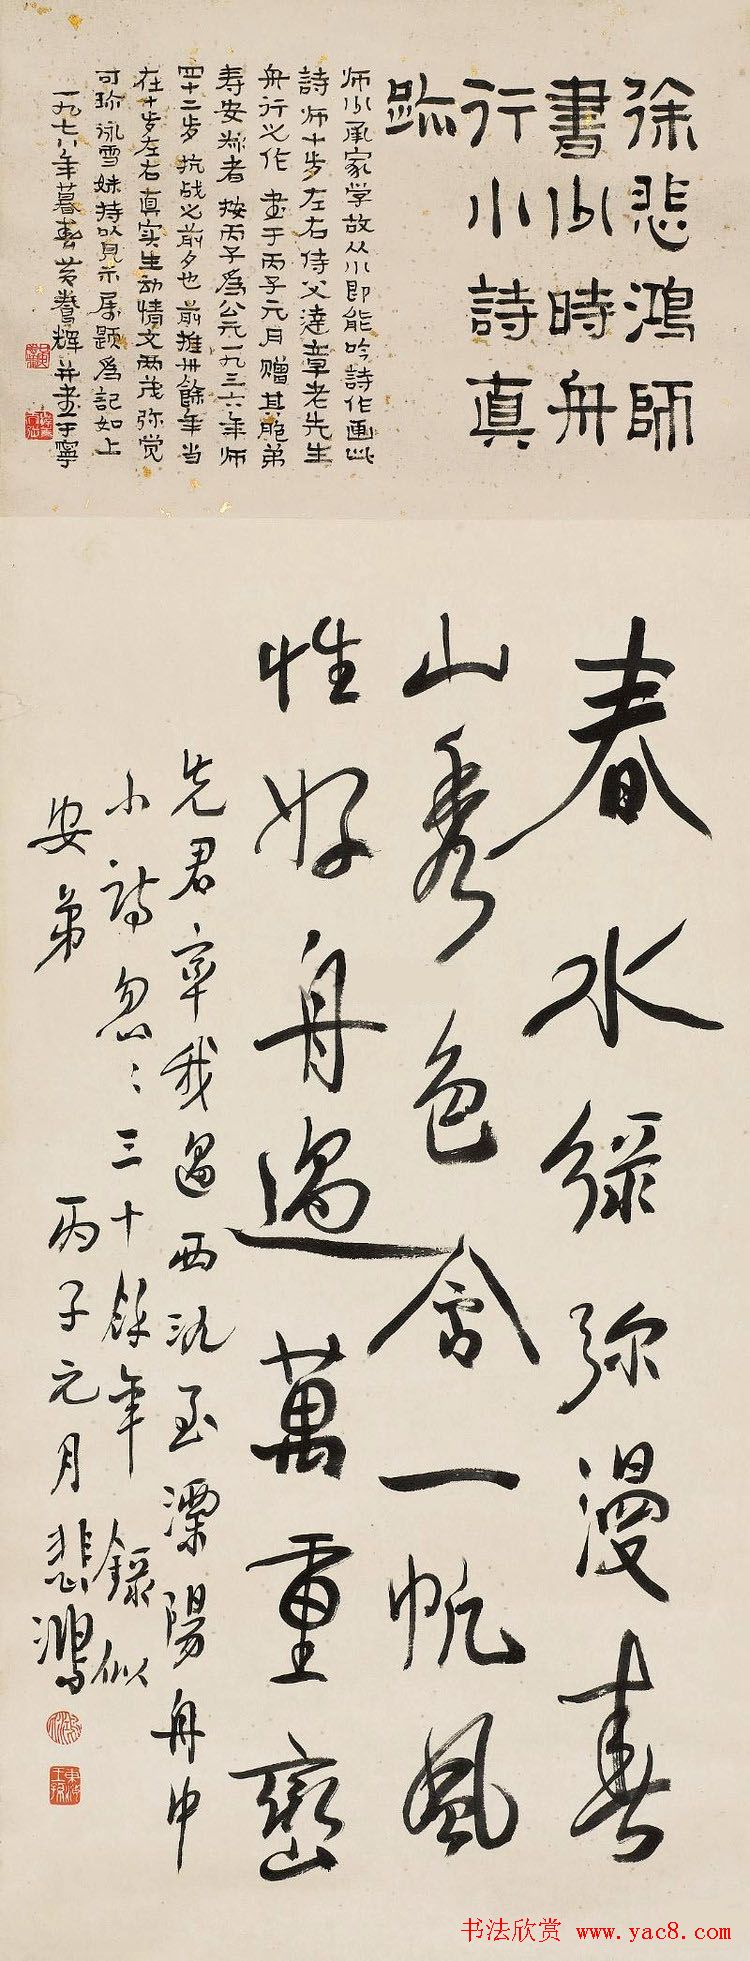 徐悲鸿師
書少時舟
行小詩真
跡
师少承家学故从小即能吟詩作画此
詩师十岁左右侍父達章老先生
舟行之作 書于丙子元月赠其胞弟
寿安叔者 按丙子為公元一九三六年师
四十二岁 抗战之前夕也 前推卅餘年当
在十岁左右 真实生动情文两茂弥觉
可珍 咏雪妹持以見示属题為記如上
一九七八年暮春黄養辉并書于寧
春水綠弥漫春
山秀色含一帆風
性好舟過萬重巒
先君率我過西氿至溧陽舟中
小詩忽忽三十餘年 錄似
安弟 丙子元月 悲鴻
书法欣赏 www.yac8.com